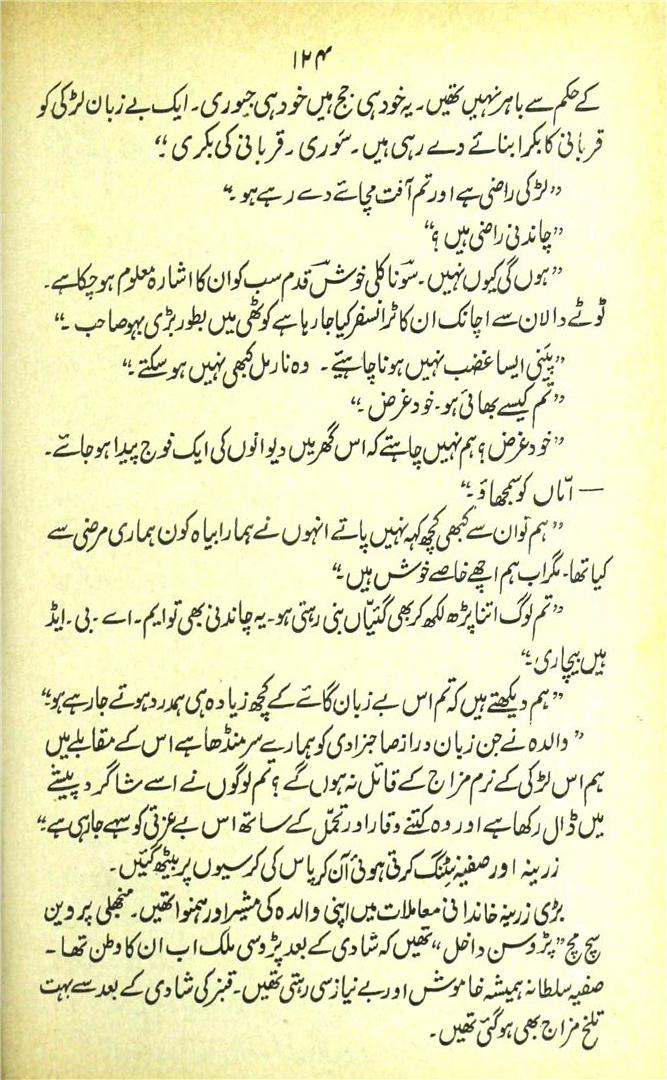 ۱۲۴
کے حکم سے باہر نہیں تھیں۔ یہ خود ہی جج ہیں خود ہی جیوری۔ ایک بے زبان لڑکی کو
قربانی کا بکرا بنائے دے رہی ہیں۔ سَوری۔ قربانی کی بکری۔“
”لڑکی راضی ہے اور تم آفت مچائے دے رہے ہو۔“
”چاندنی راضی ہیں؟“
”ہوں گی کیوں نہیں۔ سوؔنا کلی خوش قدم سب کو ان کا اشارہ معلوم ہو چکا ہے۔
ٹوٹے دالان سے اچانک ان کا ٹرانسفر کیا جا رہا ہے کوٹھی میں بطور بڑی بہو صاحب۔“
”پَنّی ایسا غضب نہیں ہونا چاہیئے۔ وہ نارمل کبھی نہیں ہو سکتے۔“
”تم کیسے بھائی ہو۔ خود غرض۔“
”خود غرض؟ ہم نہیں چاہتے کہ اس گھر میں دیوانوں کی ایک فوج پیدا ہو جائے۔
— امّاں کو سمجھاؤ۔“
”ہم تو ان سے کبھی کچھ کہہ نہیں پاتے انہوں نے ہمارا بیاہ کون ہماری مرضی سے
کیا تھا۔ مگر اب ہم اچھے خاصے خوش ہیں۔“
”تم لوگ اتنا پڑھ لکھ کر بھی گئیّاں بنی رہتی ہو۔ یہ چاندنی بھی تو ایم۔ اے۔ بی۔ ایڈ
ہیں بیچاری۔“
”ہم دیکھتے ہیں کہ تم اس بے زبان گائے کے کچھ زیادہ ہی ہمدرد ہوتے جا رہے ہو۔“
”والدہ نے جن زبان دراز صاحبزادی کو ہمارے سر منڈھا ہے اس کے مقابلے میں
ہم اس لڑکی کے نرم مزاج کے قائل نہ ہوں گے؟ تم لوگوں نے اسے شاگرد پیشے
میں ڈال رکھا ہے اور وہ کتنے وقار اور تحمّل کے ساتھ اس بے عزتی کو سہے جا رہی ہے۔“
زرینہ اور صفیہ نٹنگ کرتی ہوئی آن کر پاس کی کرسیوں پر بیٹھ گئیں۔
بڑی زرینہ خاندانی معاملات میں اپنی والدہ کی مشیر اور ہمنوا تھیں۔ منجھلی پروین
سچ مچ ”پڑوسن داخل“ تھیں کہ شادی کے بعد پڑوسی ملک اب ان کا وطن تھا۔
صفیہ سلطانہ ہمیشہ خاموش اور بے نیاز سی رہتی تھیں۔ قنبر کی شادی کے بعد سے بہت
تلخ مزاج بھی ہو گئی تھیں۔